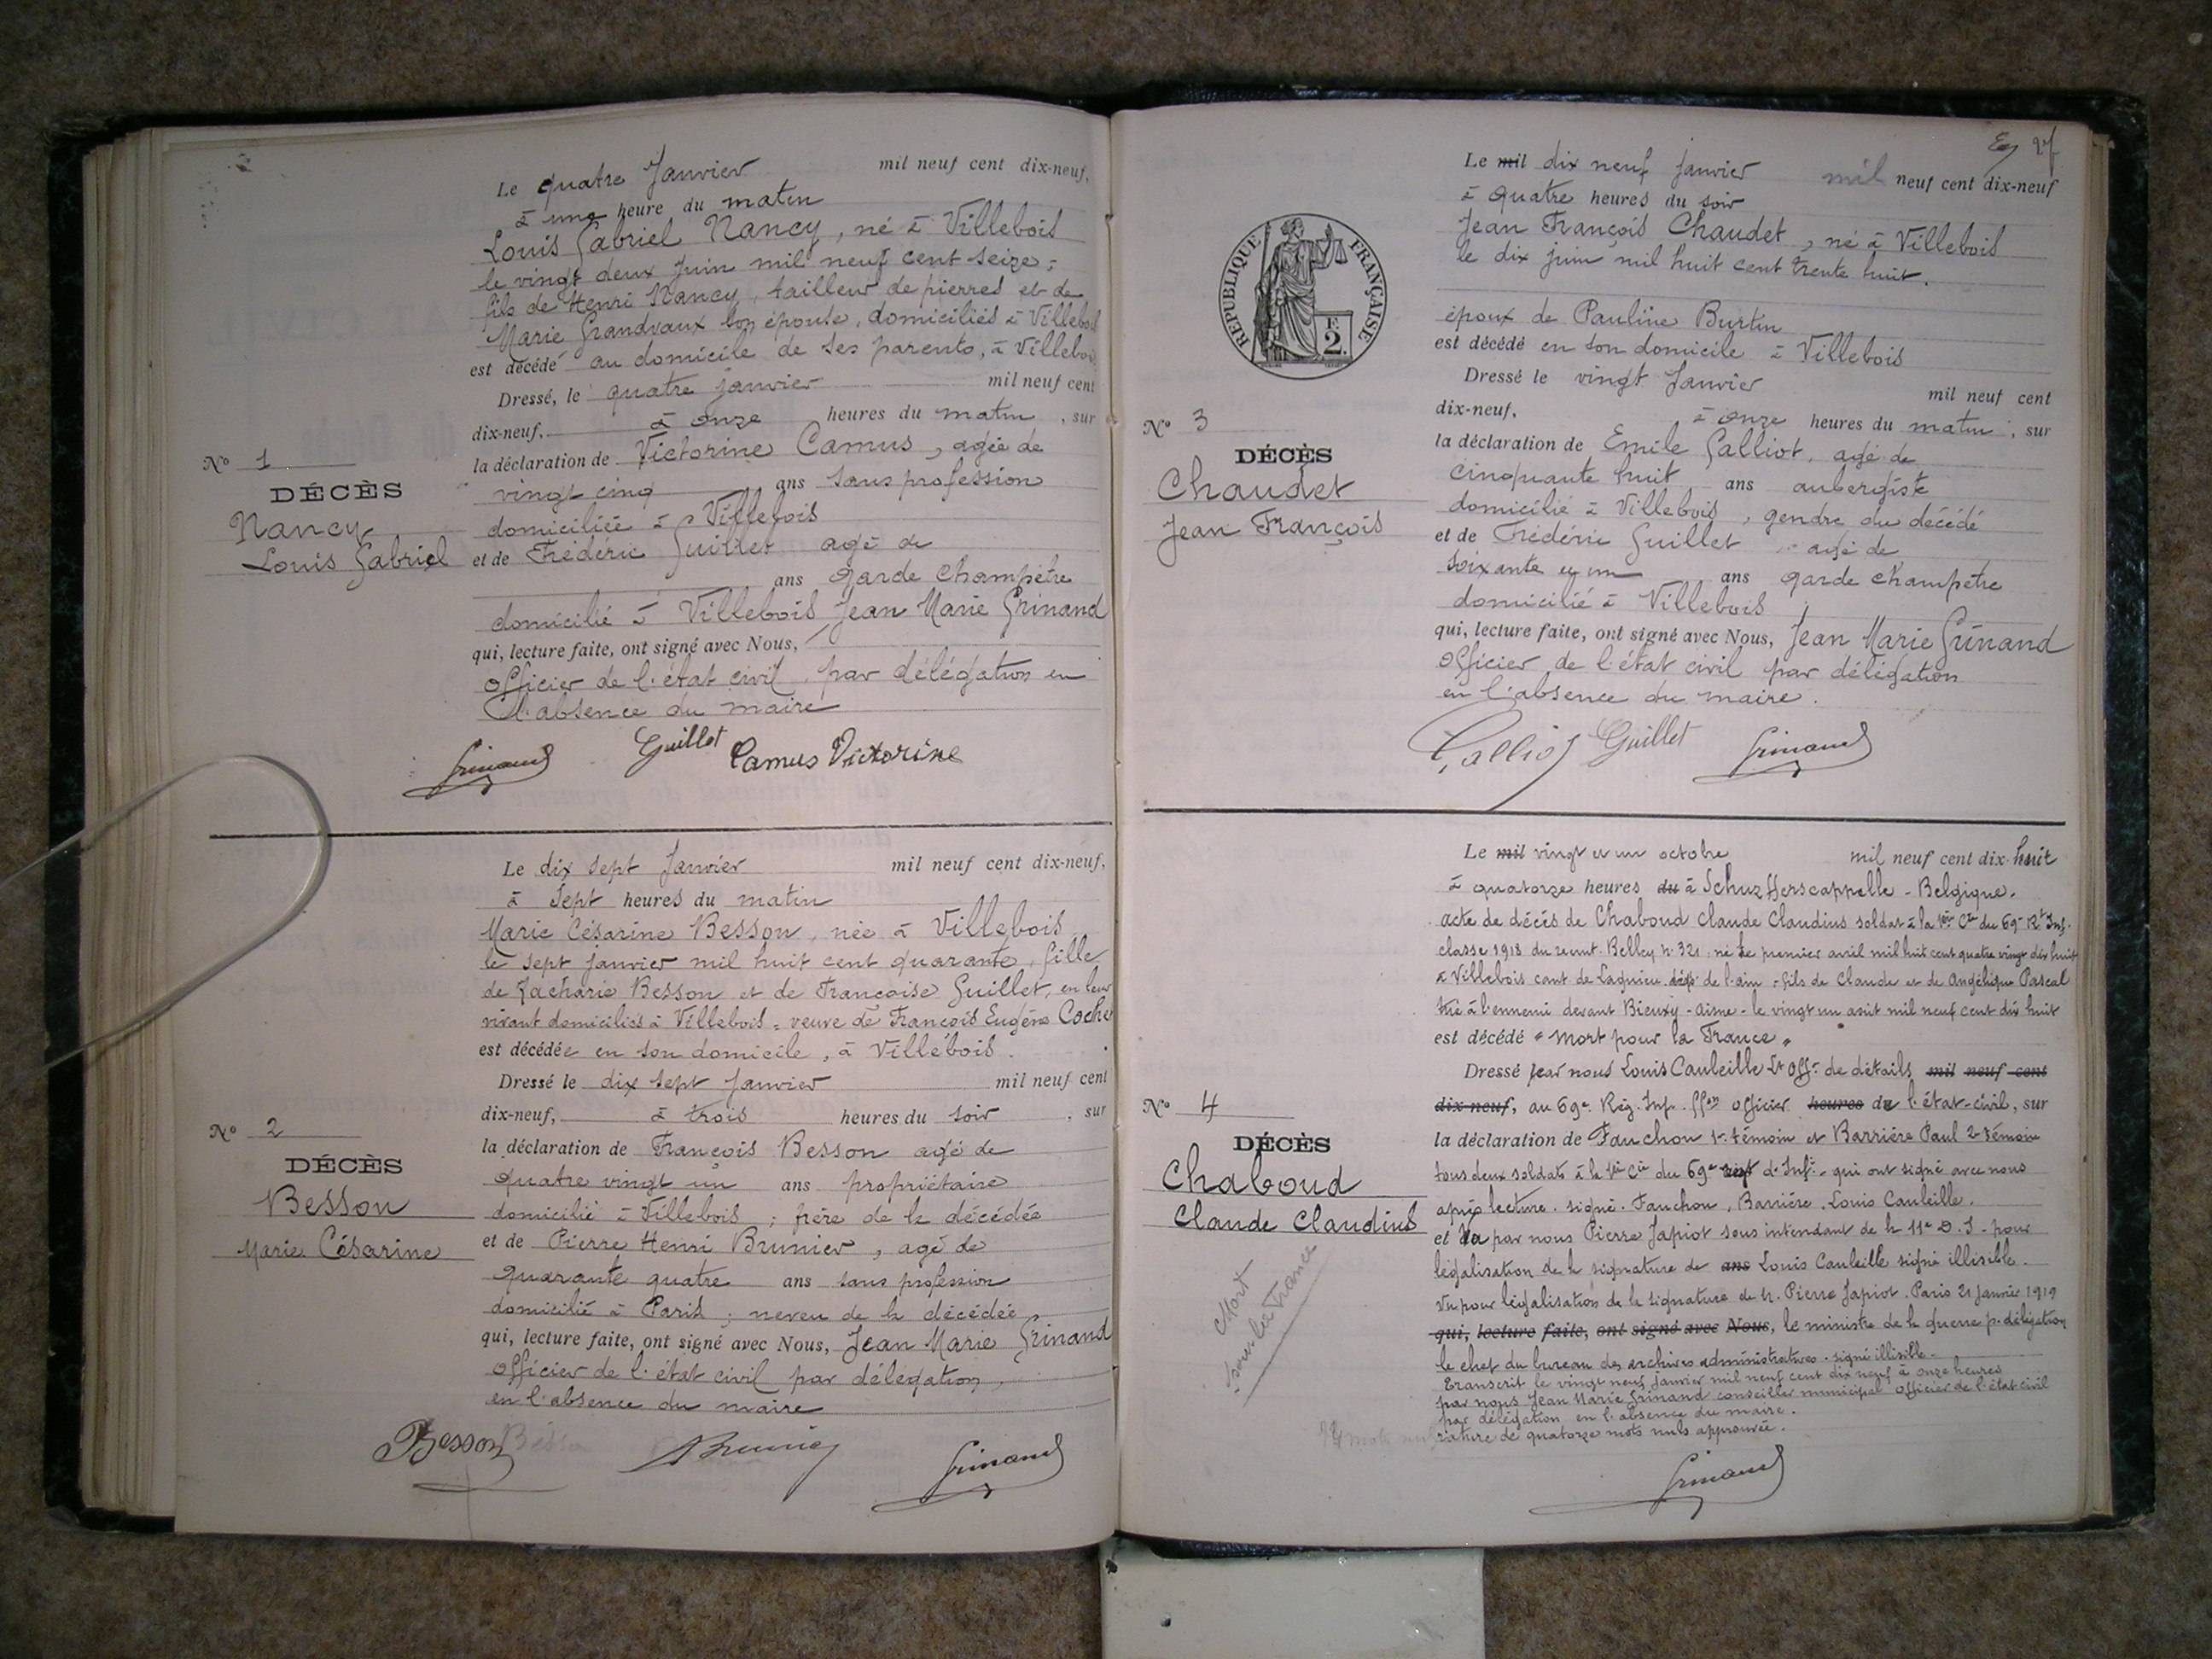 Le quatre Janvier mil neuf cent dix-neuf,
à une heure du matin
Louis Gabriel Nancy, né à Villebois
le vingt deux Juin mil neuf cent seize,
fils de Henri Nancy, tailleur de pierres et de
Marie Grandvaux son épouse, domiciliés à Villebois
est décédé au domicile de ses parents, à Villebois
Dressé, le quatre janvier mil neuf cent
dix-neuf, à onze heures du matin, sur
la déclaration de Victorine Camus, agée de
vingt cinq ans sans profession
domiciliée à Villebois
et de Frédéric Guillet agé de
ans garde champêtre
domicilié à Villebois Jean Marie Grinand
qui, lecture faite, ont signé avec Nous,
officier de l'état civil, par délégation en
l'absence du maire
Grinand Guillet Camus Victorine
N° 1
DÉCÈS
Nancy
Louis Gabriel
Le dix sept Janvier mil neuf cent dix-neuf,
à sept heures du matin
Marie Césarine Besson, née à Villebois
le sept janvier mil huit cent quarante, fille
de Zacharie Besson et de Françoise Guillet, en leur
vivant domiciliés à Villebois = veuve de François Eugène Cochet
est décédée en son domicile, à Villebois.
Dressé le dix sept Janvier mil neuf cent
dix-neuf, à trois heures du soir, sur
la déclaration de François Besson agé de
quatre vingt un ans propriétaire
domicilié à Villebois ; frère de la décédée
et de Pierre Henri Brunier, agé de
quarante quatre ans sans profession
domicilié à Paris ; neveu de la décédée,
qui, lecture faite, ont signé avec Nous, Jean Marie Grinand
officier de l'état civil par délégation,
en l'absence du maire
Besson Brunier Grinand
N° 2
DÉCÈS
Besson
Marie Césarine
27
Le mil dix neuf janvier mil neuf cent dix-neuf
à quatre heures du soir
Jean François Chaudet, né à Villebois
le dix juin mil huit cent trente huit.
époux de Pauline Burtin
est décédé en son domicile à Villebois
Dressé le vingt Janvier mil neuf cent
dix-neuf, à onze heures du matin, sur
la déclaration de Emile Galliot, agé de
cinquante huit ans aubergiste
domicilié à Villebois, gendre du décédé
et de Frédéric Guillet agé de
soixante et un ans garde champêtre
domicilié à Villebois
qui, lecture faite, ont signé avec Nous, Jean Marie Grinand
officier de l'état civil par délégation
en l'absence du maire.
Galliot Guillet Grinand
REPUBLIQUE FRANÇAISE
F.
2.
N° 3
DÉCÈS
Chaudet
Jean François
Le mil vingt et un octobre mil neuf cent dix-huit
à quatorze heures du à Schuz Herscappelle - Belgique.
acte de décès de Chaboud Claude Claudius soldat à la 1ère Cie du 69e Rt Inf.
classe 1918 du recrut. Belley n° 321. né le premier avril mil huit cent quatre vingt dix huit
à Villebois cant de Lagnieu dépt de l'ain = fils de Claude et de Angélique Pascal
tué à l'ennemi devant Bieuxy - Aisne - le vingt un août mil neuf cent dix huit
est décédé « Mort pour la France »
Dressé par nous Louis Cauleille Lt Offr de détails mil neuf cent
dix-neuf, au 69e Rég. Inf. ffon officier heures de l'état-civil, sur
la déclaration de Fauchon 1er témoin et Barrière Paul 2e témoin
tous deux soldats à la 1ère Cie du 69e d'Infie - qui ont signé avec nous
après lecture. signé. Fauchon, Barrière, Louis Cauleille.
et Vu par nous Pierre Japiot sous intendant de la 11e D. I - pour
légalisation de la signature de ans Louis Cauleille signé illisible.
Vu pour légalisation de la signature de M. Pierre Japiot. Paris 21 janvier 1919
qui, lecture faite, ont signé avec Nous, le ministre de la guerre p. délégation
le chef du bureau des archives administratives. signé illisible.
Transcrit le vingt neuf Janvier mil neuf cent dix neuf à onze heures
par nous Jean Marie Grinand conseiller municipal officier de l'état civil
par délégation en l'absence du maire.
rature de quatorze mots nuls approuvée.
Grinand
N° 4
DÉCÈS
Chaboud
Claude Claudius
Mort
pour la France